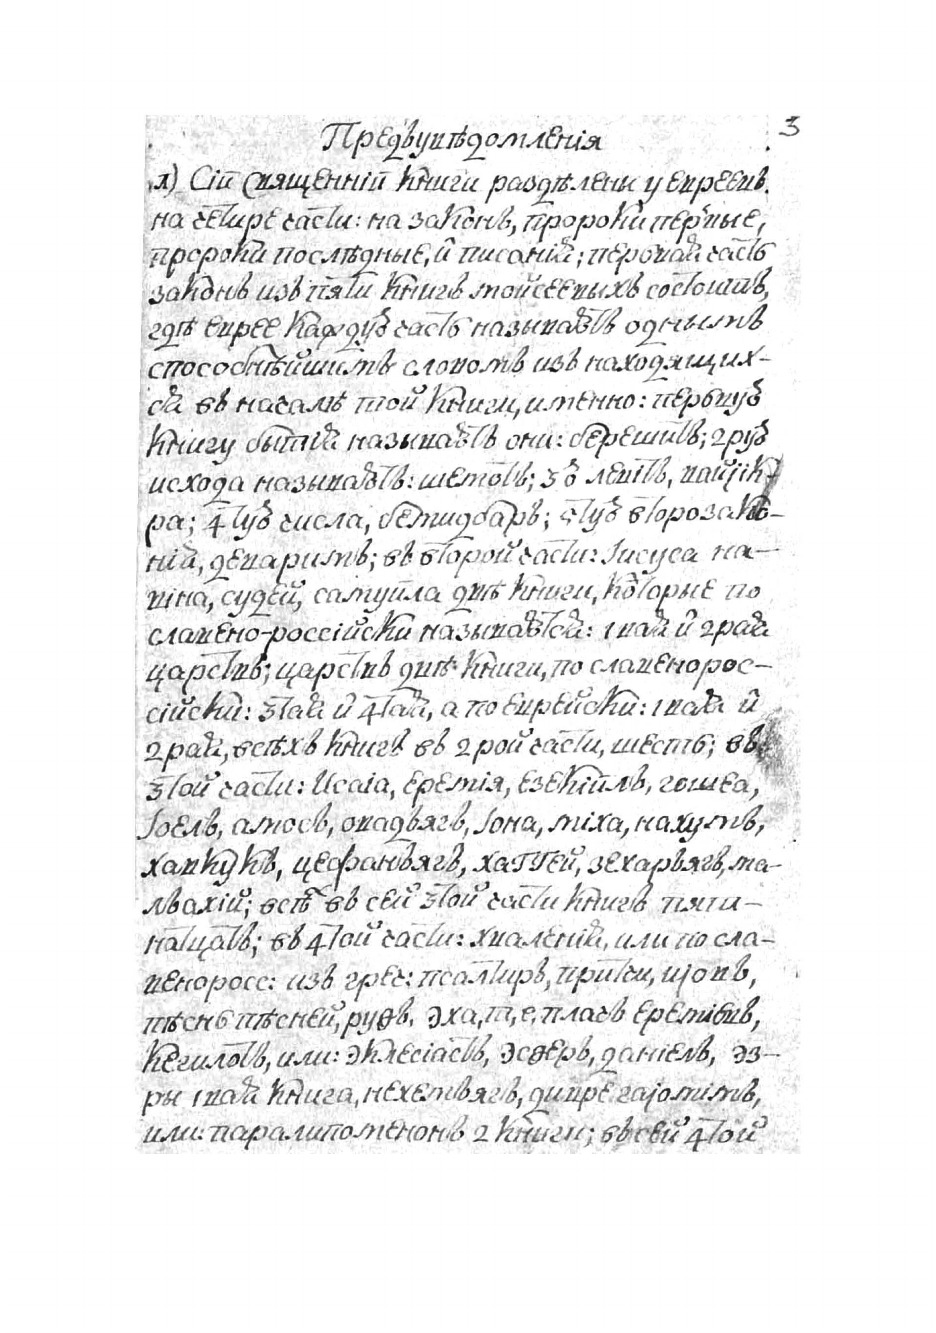 Предъувѣдомленія
3
1) Сіи священніи книги раздѣлены у евреевъ
на четыре части: на законъ, пророки первые,
пророки послѣдные, и писанія; первая часть
законъ изъ пяти книгъ мойсеевыхъ состоитъ,
гдѣ евреε каждую часть называютъ однымъ
способнѣйшимъ словомъ изъ находящих-
ся въ началѣ той книги, именно: первую
книгу бытія называютъ они: берешитъ; 2рую
исхода называютъ: шемотъ; 3ю левитъ, вайик-
ра; 4тую числа, бемидбаръ; 5тую второзако-
нія, деваримъ; въ второй части: Іисуса на-
вина, судей, самуила двѣ книги, которые по
славено-россійски называются: 1вая и 2рая
царствъ; царствъ двѣ книги, по славенорос-
сійски: 3тая и 4тая, а по еврейски: 1вая и
2рая, всѣхъ книгъ въ 2рой части, шесть; въ
3той части: Исаіа, еремія, езекіилъ, гошеа,
Іоелъ, амосъ, овадъягъ, Іона, міха, нахумъ,
хавкукъ, цефанъягъ, хаггей, зехаръягъ, ма-
лъахій; всѣ въ сей 3той части книгъ пятн-
натцать; въ 4той части: хваленій, или по сла-
веноросс: изъ грес: псалтиръ, притчи, ијовъ,
пѣснь пѣсней, руѳъ, эха, т, е, плачъ еремієвъ,
кегилотъ, или: эклесіастъ, эсѳеръ, даніелъ, эз-
ры 1вая книга, нехемъягъ, дивре гајомімъ,
или: паралипоменонъ 2 книги; въ сей 4той